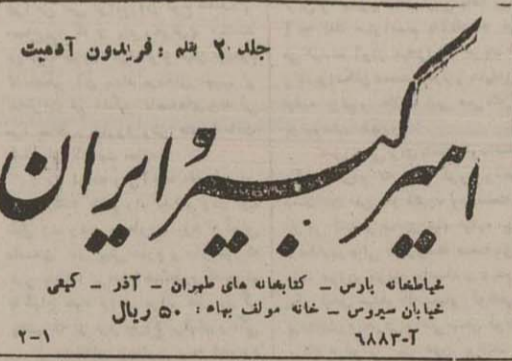 جلد ۲ بقلم : فریدون آدمیت
امیر کبیر و ایران
خیاطخانه پارس – کتابخانه های طهران – آذر – کیفی
خیابان سیروس – خانه مولف بهاء : ۵۰ ریال
آ–۶۸۸۳
۲–۱